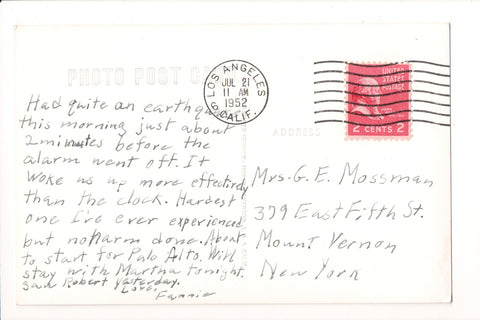 PHOTO POST CARD
LOS ANGELES
JUL 21
11 AM
1952
CALIF.
UNITED
STATES
POSTAGE
2 CENTS 2
ADDRESS
Had quite an earthquake
this morning just about
2 minutes before the
alarm went off. It
woke us up more effectively
than the clock. Hardest
one I've ever experienced
but no harm done. About
to start for Palo Alto. Will
stay with Martha tonight.
Saw Robert yesterday.
Love,
Fannie
Mrs. G. E. Mossman
379 East Fifth St.
Mount Vernon
New York